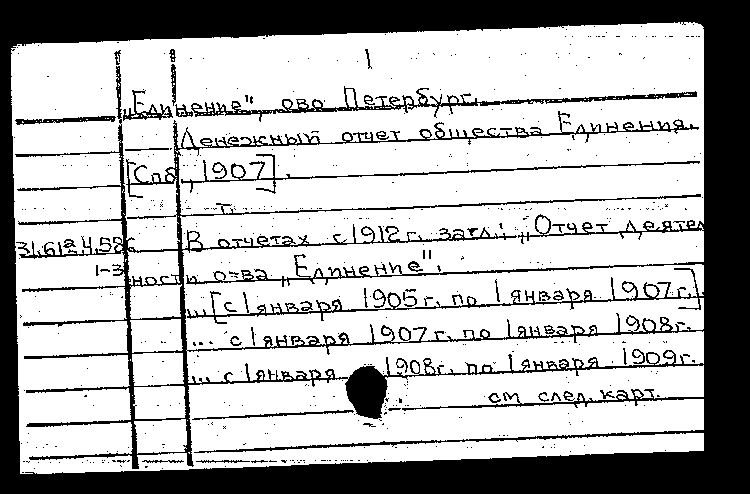 1
„Единение", ово Петербург.
Денежный отчет общества Единения.
[Спб, 1907].
т.
31.61а.4.58с В отчетах с 1912 г. загл.: „Отчет деятел
1-3 ности о-тва „Единение".
... [с 1 января 1905 г. по 1 января 1907 г.].
... с 1 января 1907 г. по 1 января 1908 г.
... с 1 января 1908 г. по 1 января 1909 г.
см след. карт.